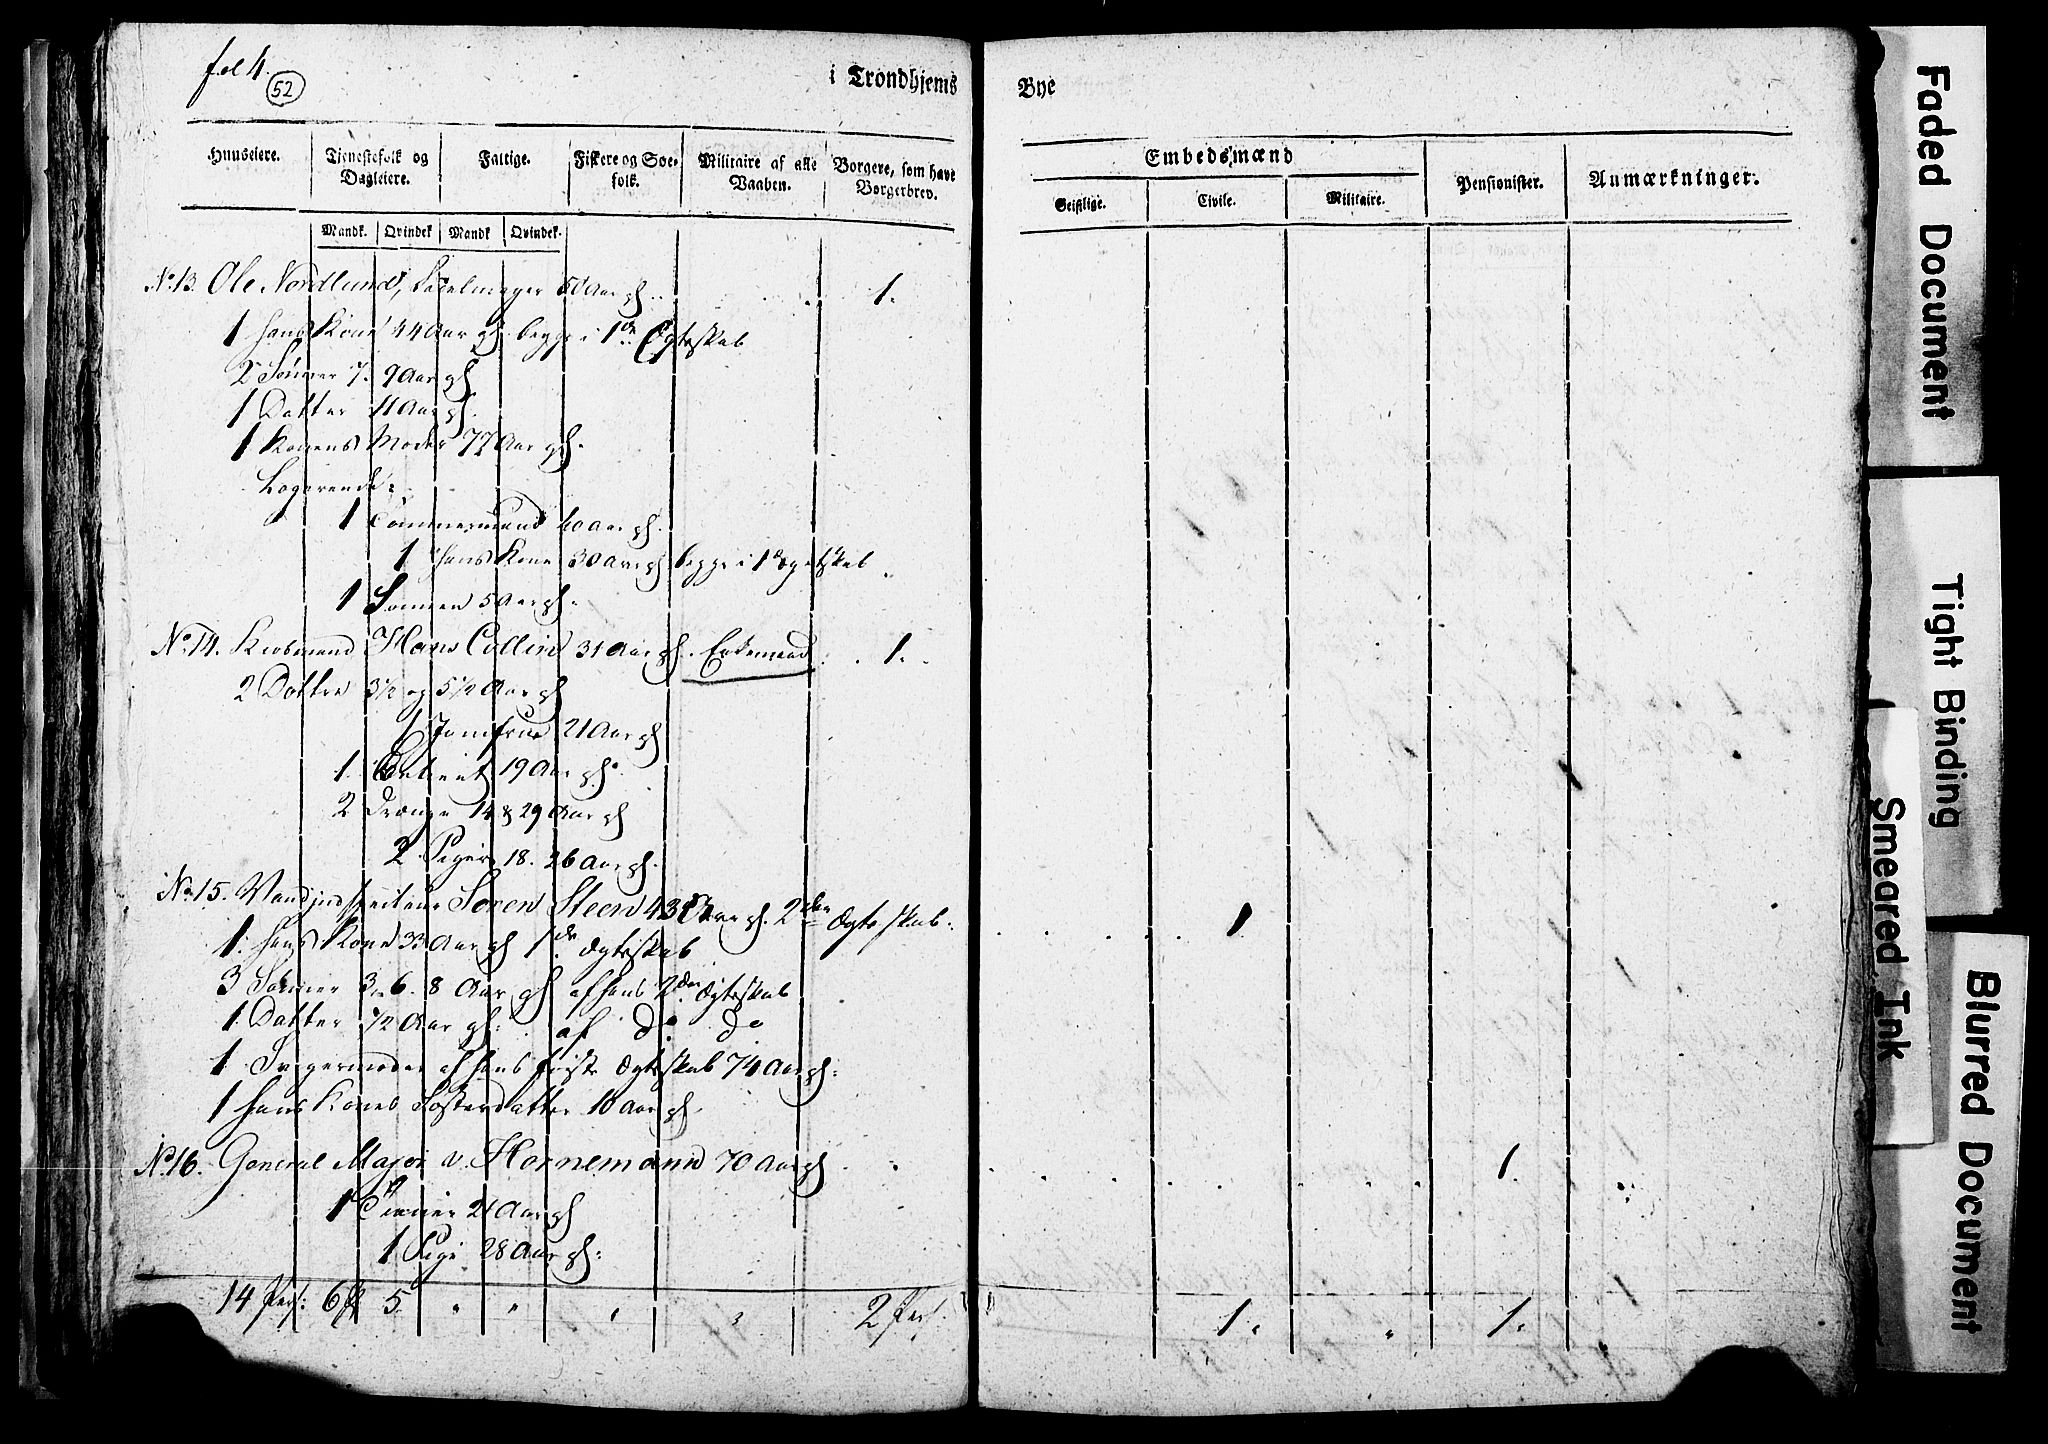 fol 4.
52
i Trondhjems Bye
Huuseiere. Tienestefolk og Dagleiere. Fattige. Fiskere og Søe-folk. Militaire af alle Vaaben. Borgere, som have Borgerbrev. Embedsmænd Pensionister. Anmærkninger.
Geistlige. Civile. Militaire.
Mandk. Qvindek Mandk Qvindek.
No. 13. Ole Nordlund, 50 Aar gl. 1.
1 hans Kone 44 Aar gl. begge i 1de Ægteskab
2 Sønner 7. 9 Aar gl
1 Datter 11 Aar gl.
1 Konens Moder 77 Aar gl.
Logerende:
1 Tømmermand 40 Aar gl.
1 hans Kone 30 Aar gl begge i 1 Ægteskab
1 Sønnen 5 Aar gl.
No. 14. Kiøbmand Hans Collin 31 Aar gl. Enkemand 1.
2 Døttre 3 1/2 og 5 1/2 Aar gl
1 Jomfrue 21 Aar gl
1. 19 Aar gl.
2 Drenge 14 & 29 Aar gl
2 Piger 18. 26 Aar gl.
No. 15. Vandinspecteur Soren Steen 43 Aar gl. 2den Ægteskab. 1
1. hans Kone 33 Aar gl 1de Ægteskab
3 Sønner 3. 6. 8 Aar gl af hans 2den Ægteskab
1. Datter 1/2 Aar gl. af do do
1 Svigermoder af hans første Ægteskab 74 Aar gl.
1 hans Kones Søsterdatter 10 Aar gl.
No. 16. General Major v. Hornemann 70 Aar gl 1.
1 Tiener 21 Aar gl
1 Pige 28 Aar gl.
14 Pers: 6 5 " " " " 2 Pers. 1. " 1.
Faded Document
Tight Binding
Smeared Ink
Blurred Document